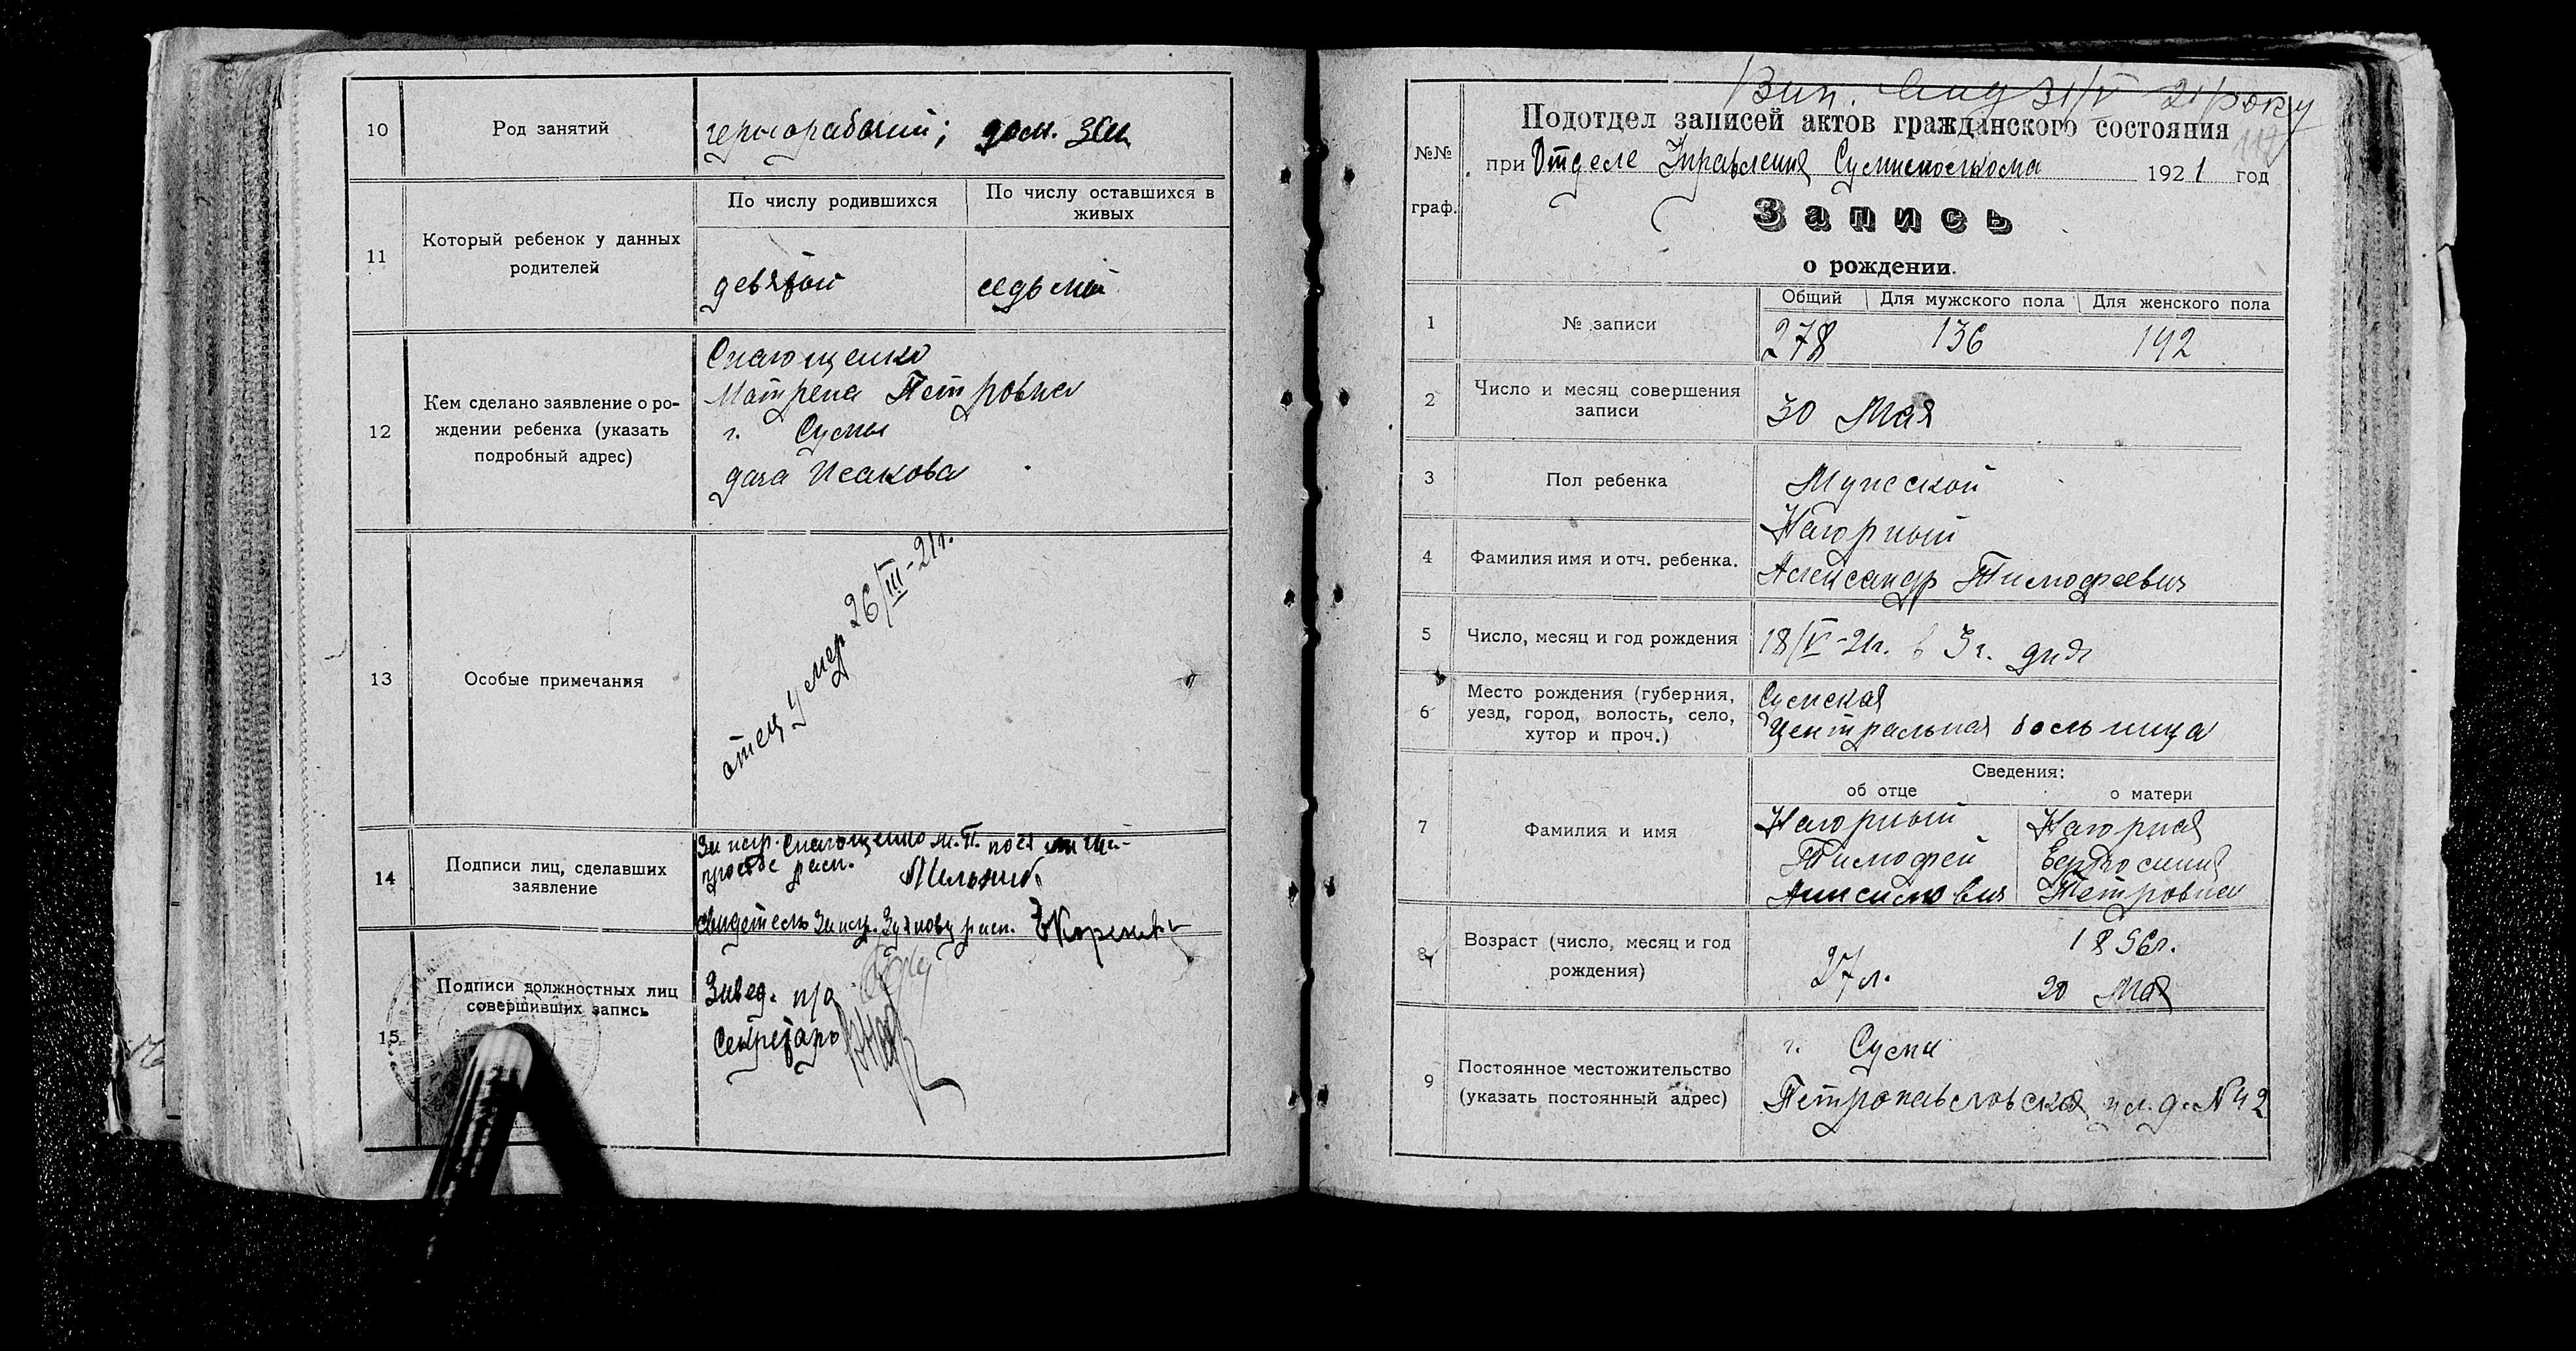 10
Род занятий
чернорабочий; дом. хоз.
11
Который ребенок у данных
родителей
По числу родившихся
По числу оставшихся в
живых
девятый
седьмой
12
Кем сделано заявление о ро-
ждении ребенка (указать
подробный адрес)
Матрена Петровна
г. Сумы
дача Исакова
13
Особые примечания
отец умер 26/III-21г.
14
Подписи лиц, сделавших
заявление
За негр.
М.П. по
свидетель За негр.
15
Подписи должностных лиц
совершивших запись
Завед. п/о
Секретарь
Вип. 31/V 21 року
№№
граф.
Подотдел записей актов гражданского состояния
при Отделе Управления Сумисполкома 1921 год
Запись
о рождении.
1
№ записи
Общий
Для мужского пола
Для женского пола
278
136
142
2
Число и месяц совершения
записи
30 Мая
3
Пол ребенка
Мужской
4
Фамилия имя и отч. ребенка.
Нагорный
Александр Тимофеевич
5
Число, месяц и год рождения
18/V-21г. в 3 ч. дня
6
Место рождения (губерния,
уезд, город, волость, село,
хутор и проч.)
Сумская
Центральная больница
7
Фамилия и имя
Сведения:
об отце
о матери
Нагорный
Тимофей
Анисимович
Нагорная
Евфросиния
Петровна
8
Возраст (число, месяц и год
рождения)
27 л.
1896г.
20 Мая
9
Постоянное местожительство
(указать постоянный адрес)
г. Сумы
Петропавловская ул. д. № 42